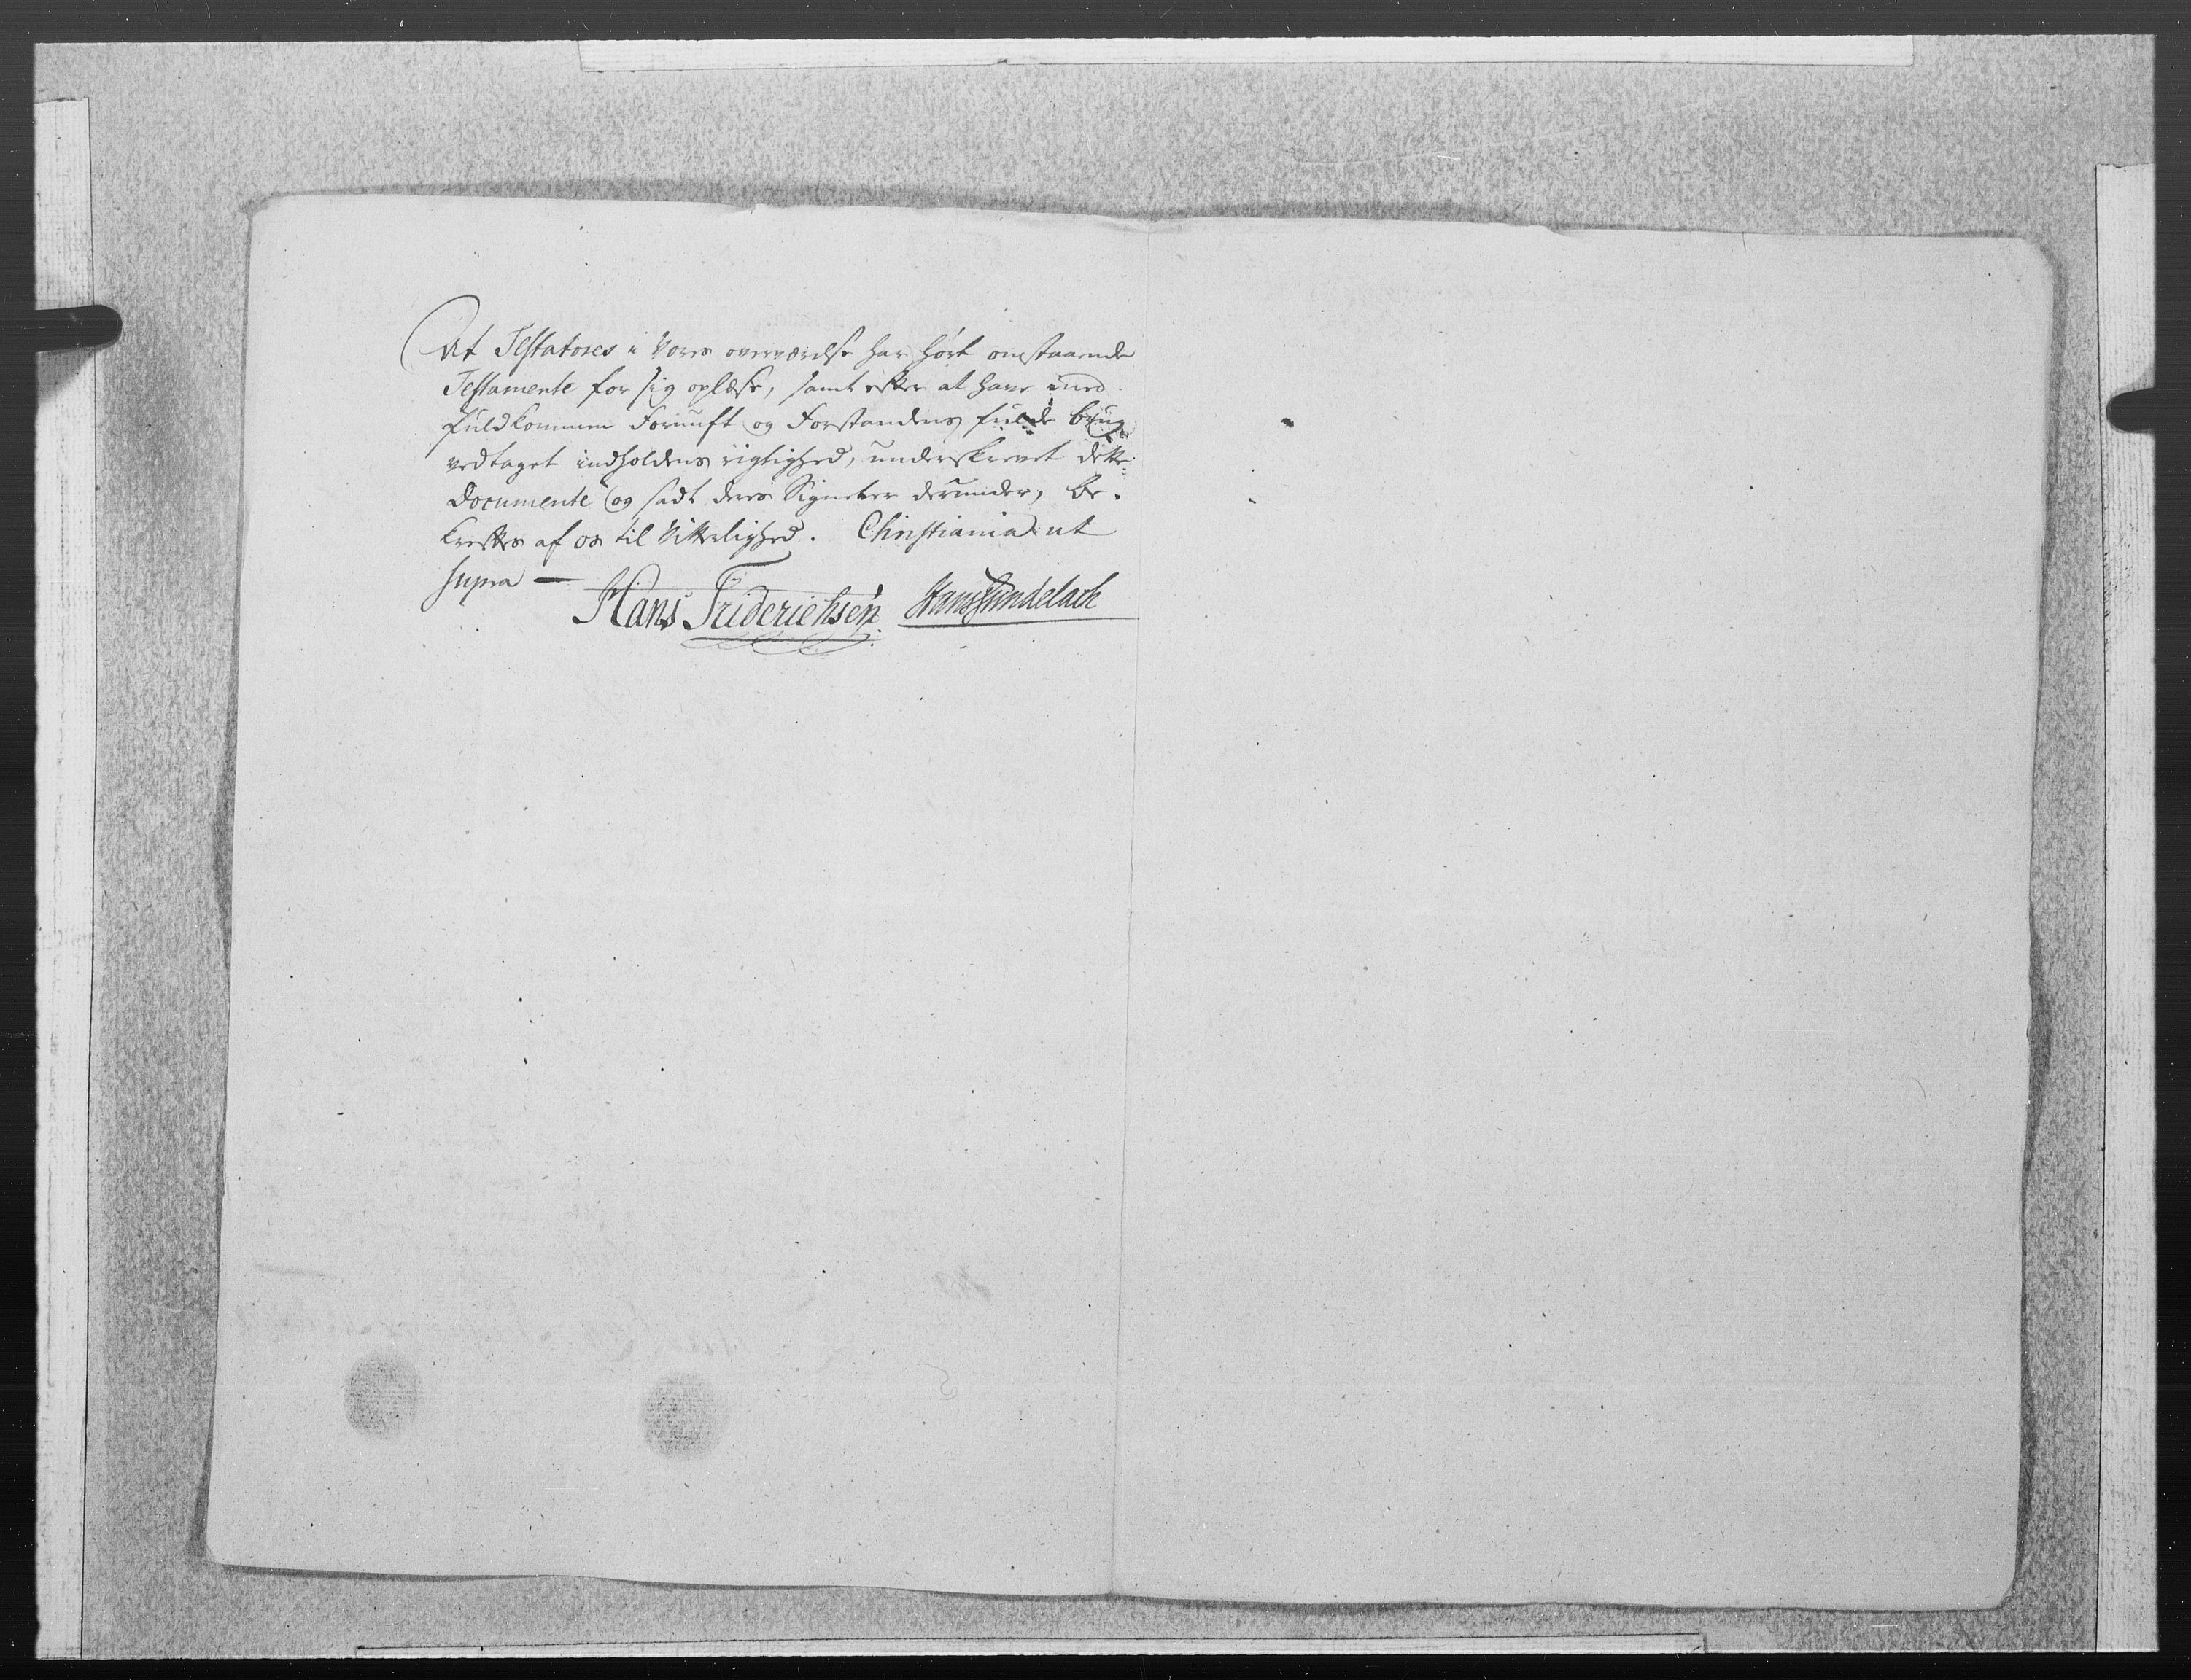 At Testatores i Vores overværelse har hørt omstaaende
Testamente for sig oplæse, samt efter at have med
fuldkommen Fornuft og Forstandens fulde brug
vedtaget indholdens rigtighed, underskrevet dette
Documente og sadt deres Signeter derunder, be-
kreftes af os til Vitterlighed. Christiania ut
supra —
Hans Friderichsen Hans Gundelach